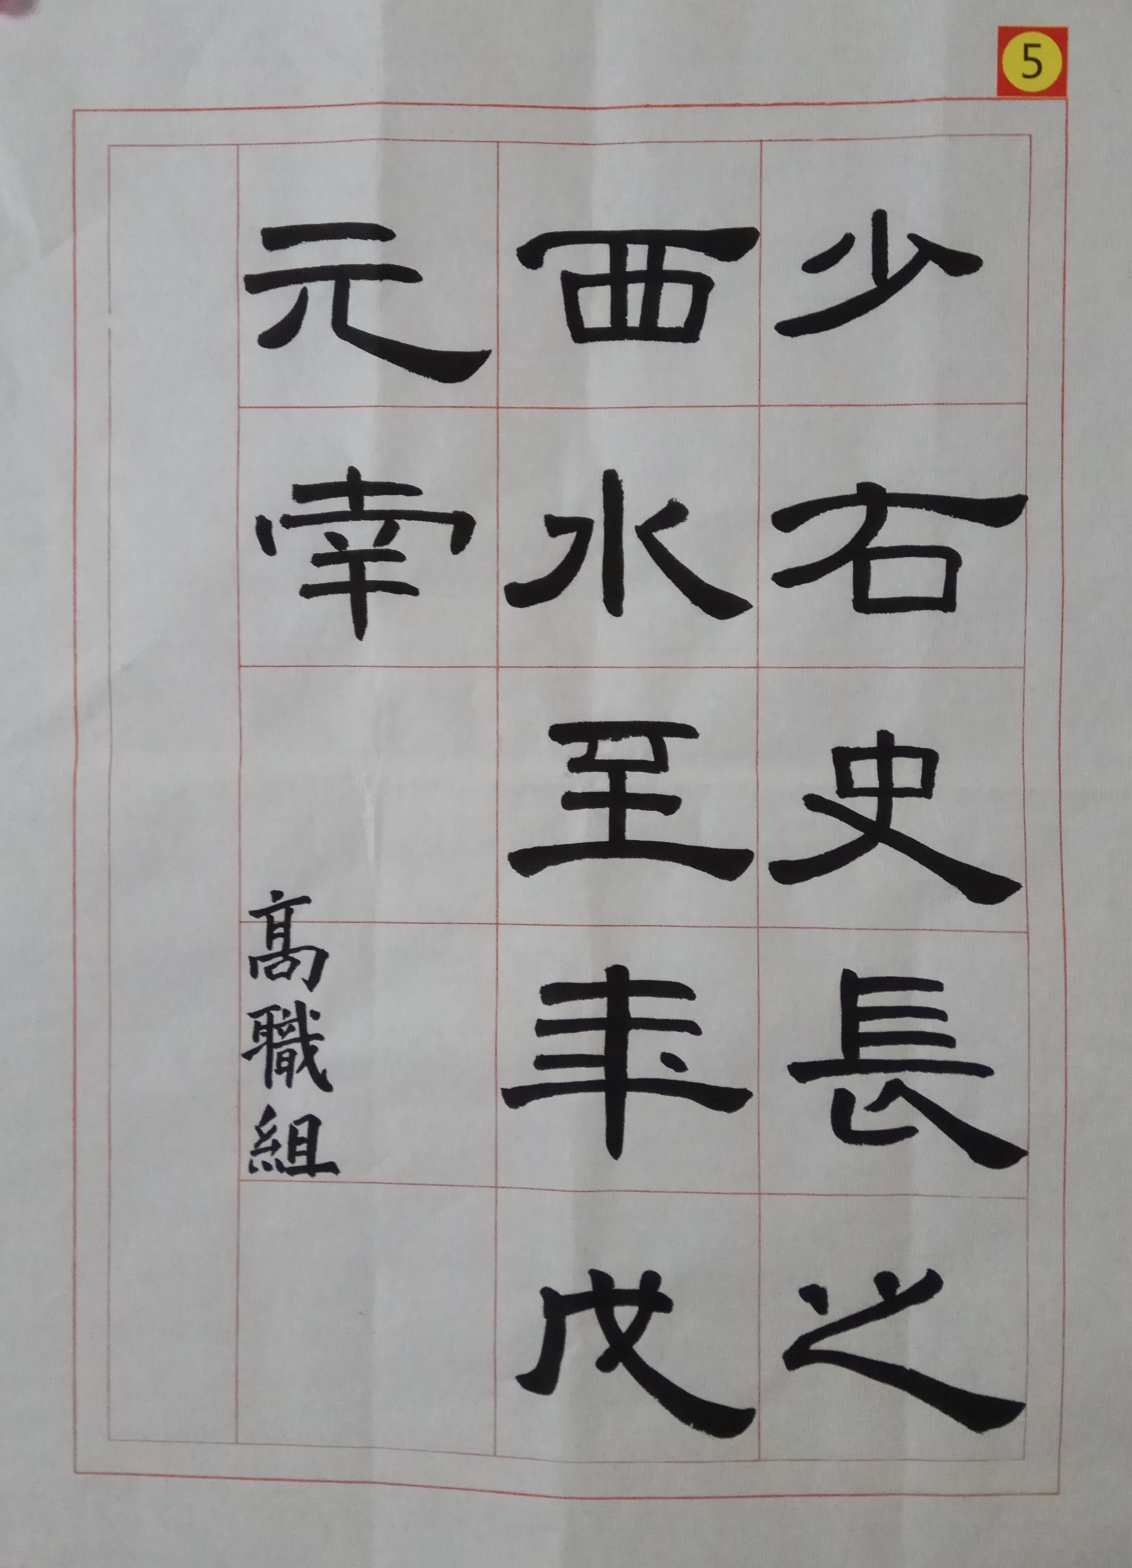 5
少石史長之
西水至年戊
元幸
高職組